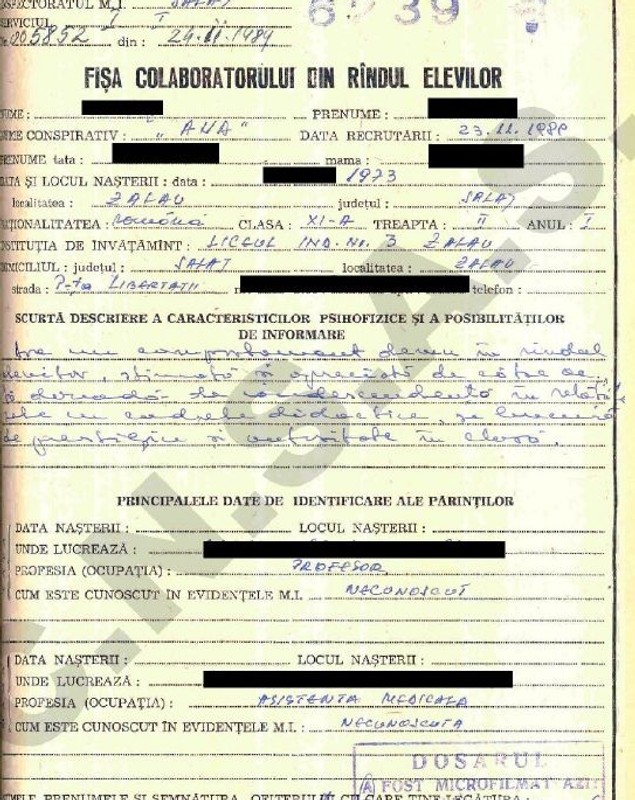 INSPECTORATUL M.I. SALAJ
SERVICIUL I
Nr. 005852 din : 24.11.1989
6 39
FIȘA COLABORATORULUI DIN RÎNDUL ELEVILOR
NUME : PRENUME :
NUME CONSPIRATIV : "ANA" DATA RECRUTĂRII : 23.11.1989
PRENUME tata : mama :
DATA ȘI LOCUL NAȘTERII : data : 1973
localitatea : ZALAU județul : SALAJ
NAȚIONALITATEA : Română CLASA : XI-A TREAPTA : II ANUL : I
INSTITUȚIA DE ÎNVĂȚĂMÎNT : LICEUL IND. NR. 3 ZALAU
DOMICILIUL : județul : SALAJ localitatea : ZALAU
strada : P-ța LIBERTATII telefon :
SCURTĂ DESCRIERE A CARACTERISTICILOR PSIHOFIZICE ȘI A POSIBILITĂȚILOR
DE INFORMARE
Are un comportament demn în rîndul
elevilor, stimată și apreciată de către
dovadă de condescendență în
cu cadrele didactice, se bucură
de prestigiu și autoritate în clasă.
PRINCIPALELE DATE DE IDENTIFICARE ALE PĂRINȚILOR
DATA NAȘTERII : LOCUL NAȘTERII :
UNDE LUCREAZĂ :
PROFESIA (OCUPAȚIA) : PROFESOR
CUM ESTE CUNOSCUT ÎN EVIDENȚELE M.I. NECUNOSCUT
DATA NAȘTERII : LOCUL NAȘTERII :
UNDE LUCREAZĂ :
PROFESIA (OCUPAȚIA) : ASISTENTA MEDICALA
CUM ESTE CUNOSCUT ÎN EVIDENȚELE M.I. : NECUNOSCUTA
DOSARUL
A FOST MICROFILMAT AZI
NUMELE, PRENUMELE ȘI SEMNĂTURA OFIȚERULUI CU CARE ȚINE LEGĂTURA :
C.N.S.A.S.